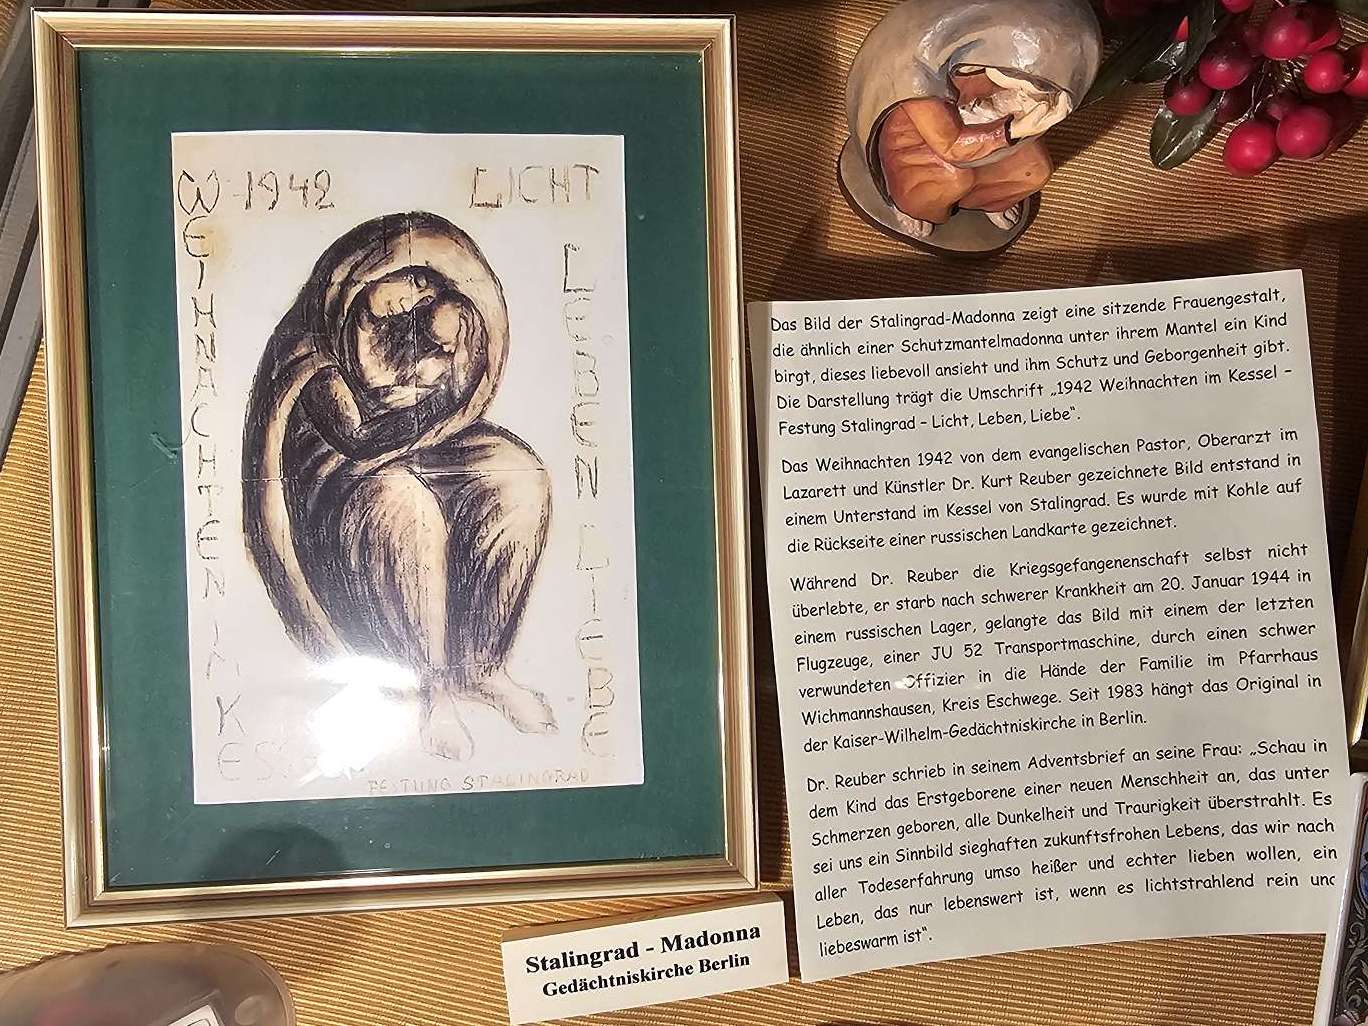 1942
WEIHNACHTEN IM KESSEL
LICHT
LEBEN LIEBE
FESTUNG STALINGRAD
Stalingrad - Madonna
Gedächtniskirche Berlin
Das Bild der Stalingrad-Madonna zeigt eine sitzende Frauengestalt,
die ähnlich einer Schutzmantelmadonna unter ihrem Mantel ein Kind
birgt, dieses liebevoll ansieht und ihm Schutz und Geborgenheit gibt.
Die Darstellung trägt die Umschrift „1942 Weihnachten im Kessel –
Festung Stalingrad – Licht, Leben, Liebe“.
Das Weihnachten 1942 von dem evangelischen Pastor, Oberarzt im
Lazarett und Künstler Dr. Kurt Reuber gezeichnete Bild entstand in
einem Unterstand im Kessel von Stalingrad. Es wurde mit Kohle auf
die Rückseite einer russischen Landkarte gezeichnet.
Während Dr. Reuber die Kriegsgefangenenschaft selbst nicht
überlebte, er starb nach schwerer Krankheit am 20. Januar 1944 in
einem russischen Lager, gelangte das Bild mit einem der letzten
Flugzeuge, einer JU 52 Transportmaschine, durch einen schwer
verwundeten Offizier in die Hände der Familie im Pfarrhaus
Wichmannshausen, Kreis Eschwege. Seit 1983 hängt das Original in
der Kaiser-Wilhelm-Gedächtniskirche in Berlin.
Dr. Reuber schrieb in seinem Adventsbrief an seine Frau: „Schau in
dem Kind das Erstgeborene einer neuen Menschheit an, das unter
Schmerzen geboren, alle Dunkelheit und Traurigkeit überstrahlt. Es
sei uns ein Sinnbild sieghaften zukunftsfrohen Lebens, das wir nach
aller Todeserfahrung umso heißer und echter lieben wollen, ein
Leben, das nur lebenswert ist, wenn es lichtstrahlend rein und
liebeswarm ist“.